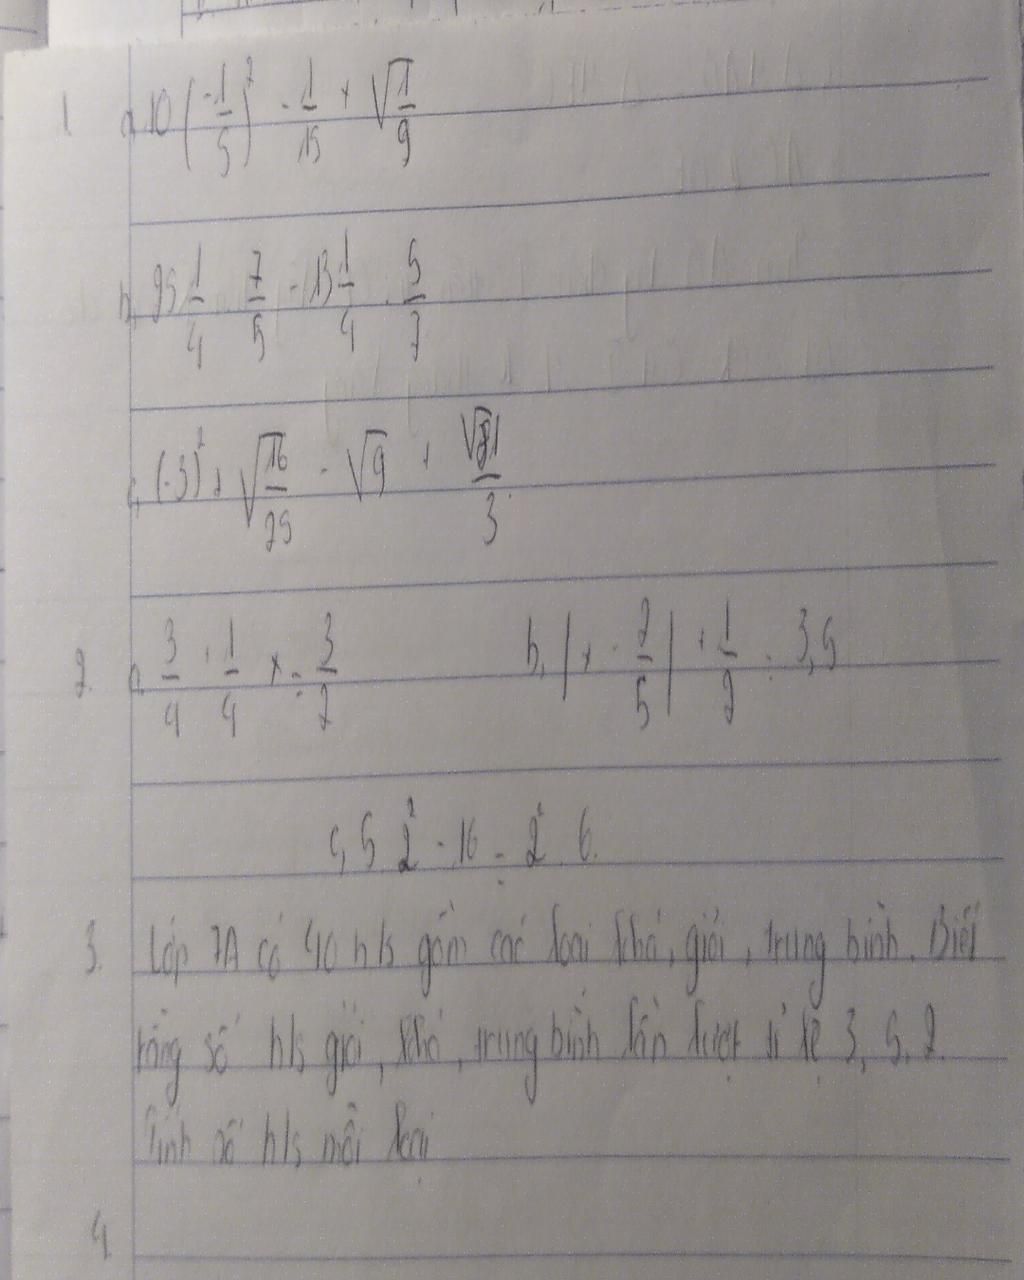 1. a, 10 (-1/5)² - 1/15 + √(1/9)
b, 25 1/4 . 7/5 - 13 1/4 . 5/7
c, (-3)² + √(16/25) - √9 + √81/3
2. a, 3/4 + 1/4 x = 3/2 b, |x - 2/5| + 1/2 = 3,5
c, 5 2² - 16 = 2² . 6.
3. Lớp 7A có 40 h/s gồm các loại khá, giỏi, trung bình. Biết
rằng số h/s giỏi, khá, trung bình lần lượt tỉ lệ 3, 5, 2.
Tính số h/s mỗi loại
4.